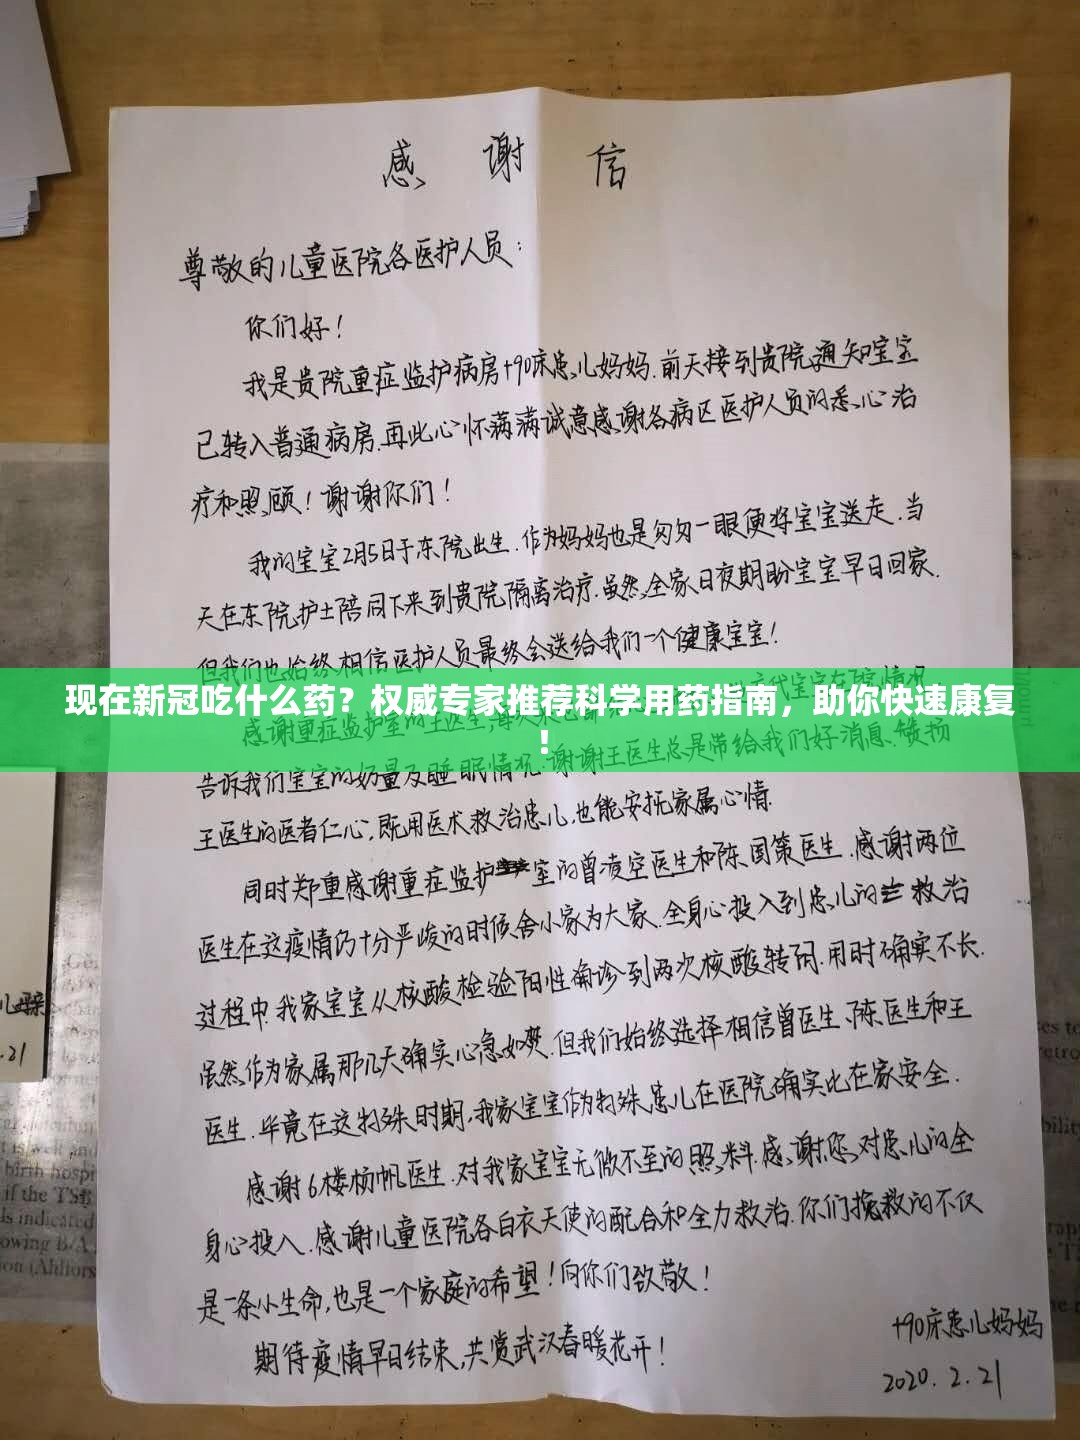 感谢信
尊敬的儿童医院各医护人员：
你们好！
我是贵院重症监护病房+90床患儿妈妈.前天接到贵院通知宝宝
已转入普通病房.再此心怀满满诚意感谢各病区医护人员的悉心治
疗和照顾！谢谢你们！
我的宝宝2月5日于东院出生.作为妈妈也是匆匆一眼便将宝宝送走.当
天在东院护士陪同下来到贵院隔离治疗.虽然全家日夜期盼宝宝早日回家.
但我们也始终相信医护人员最终会送给我们一个健康宝宝！
现在新冠吃什么药？权威专家推荐科学用药指南，助你快速康复
！
感谢重症监护室的王医生,每天
宝宝在院情况.
告诉我们宝宝的奶量及睡眠情况.谢谢王医生总是带给我们好消息.赞扬
王医生的医者仁心,既用医术救治患儿,也能安抚家属心情.
同时郑重感谢重症监护室的曾凌空医生和陈国策医生.感谢两位
医生在这疫情仍十分严峻的时候舍小家为大家.全身心投入到患儿的救治
过程中.我家宝宝从核酸检验阳性确诊到两次核酸转阴.用时确实不长.
虽然作为家属那几天确实心急如焚.但我们始终选择相信曾医生、陈医生和王
医生.毕竟在这特殊时期,我家宝宝作为特殊患儿在医院确实比在家安全.
感谢6楼杨帆医生.对我家宝宝无微不至的照料.感谢您对患儿的全
身心投入.感谢儿童医院各白衣天使的配合和全力救治.你们挽救的不仅
是一条小生命,也是一个家庭的希望！向你们致敬！
期待疫情早日结束,共赏武汉春暖花开！
+90床患儿妈妈
2020.2.21